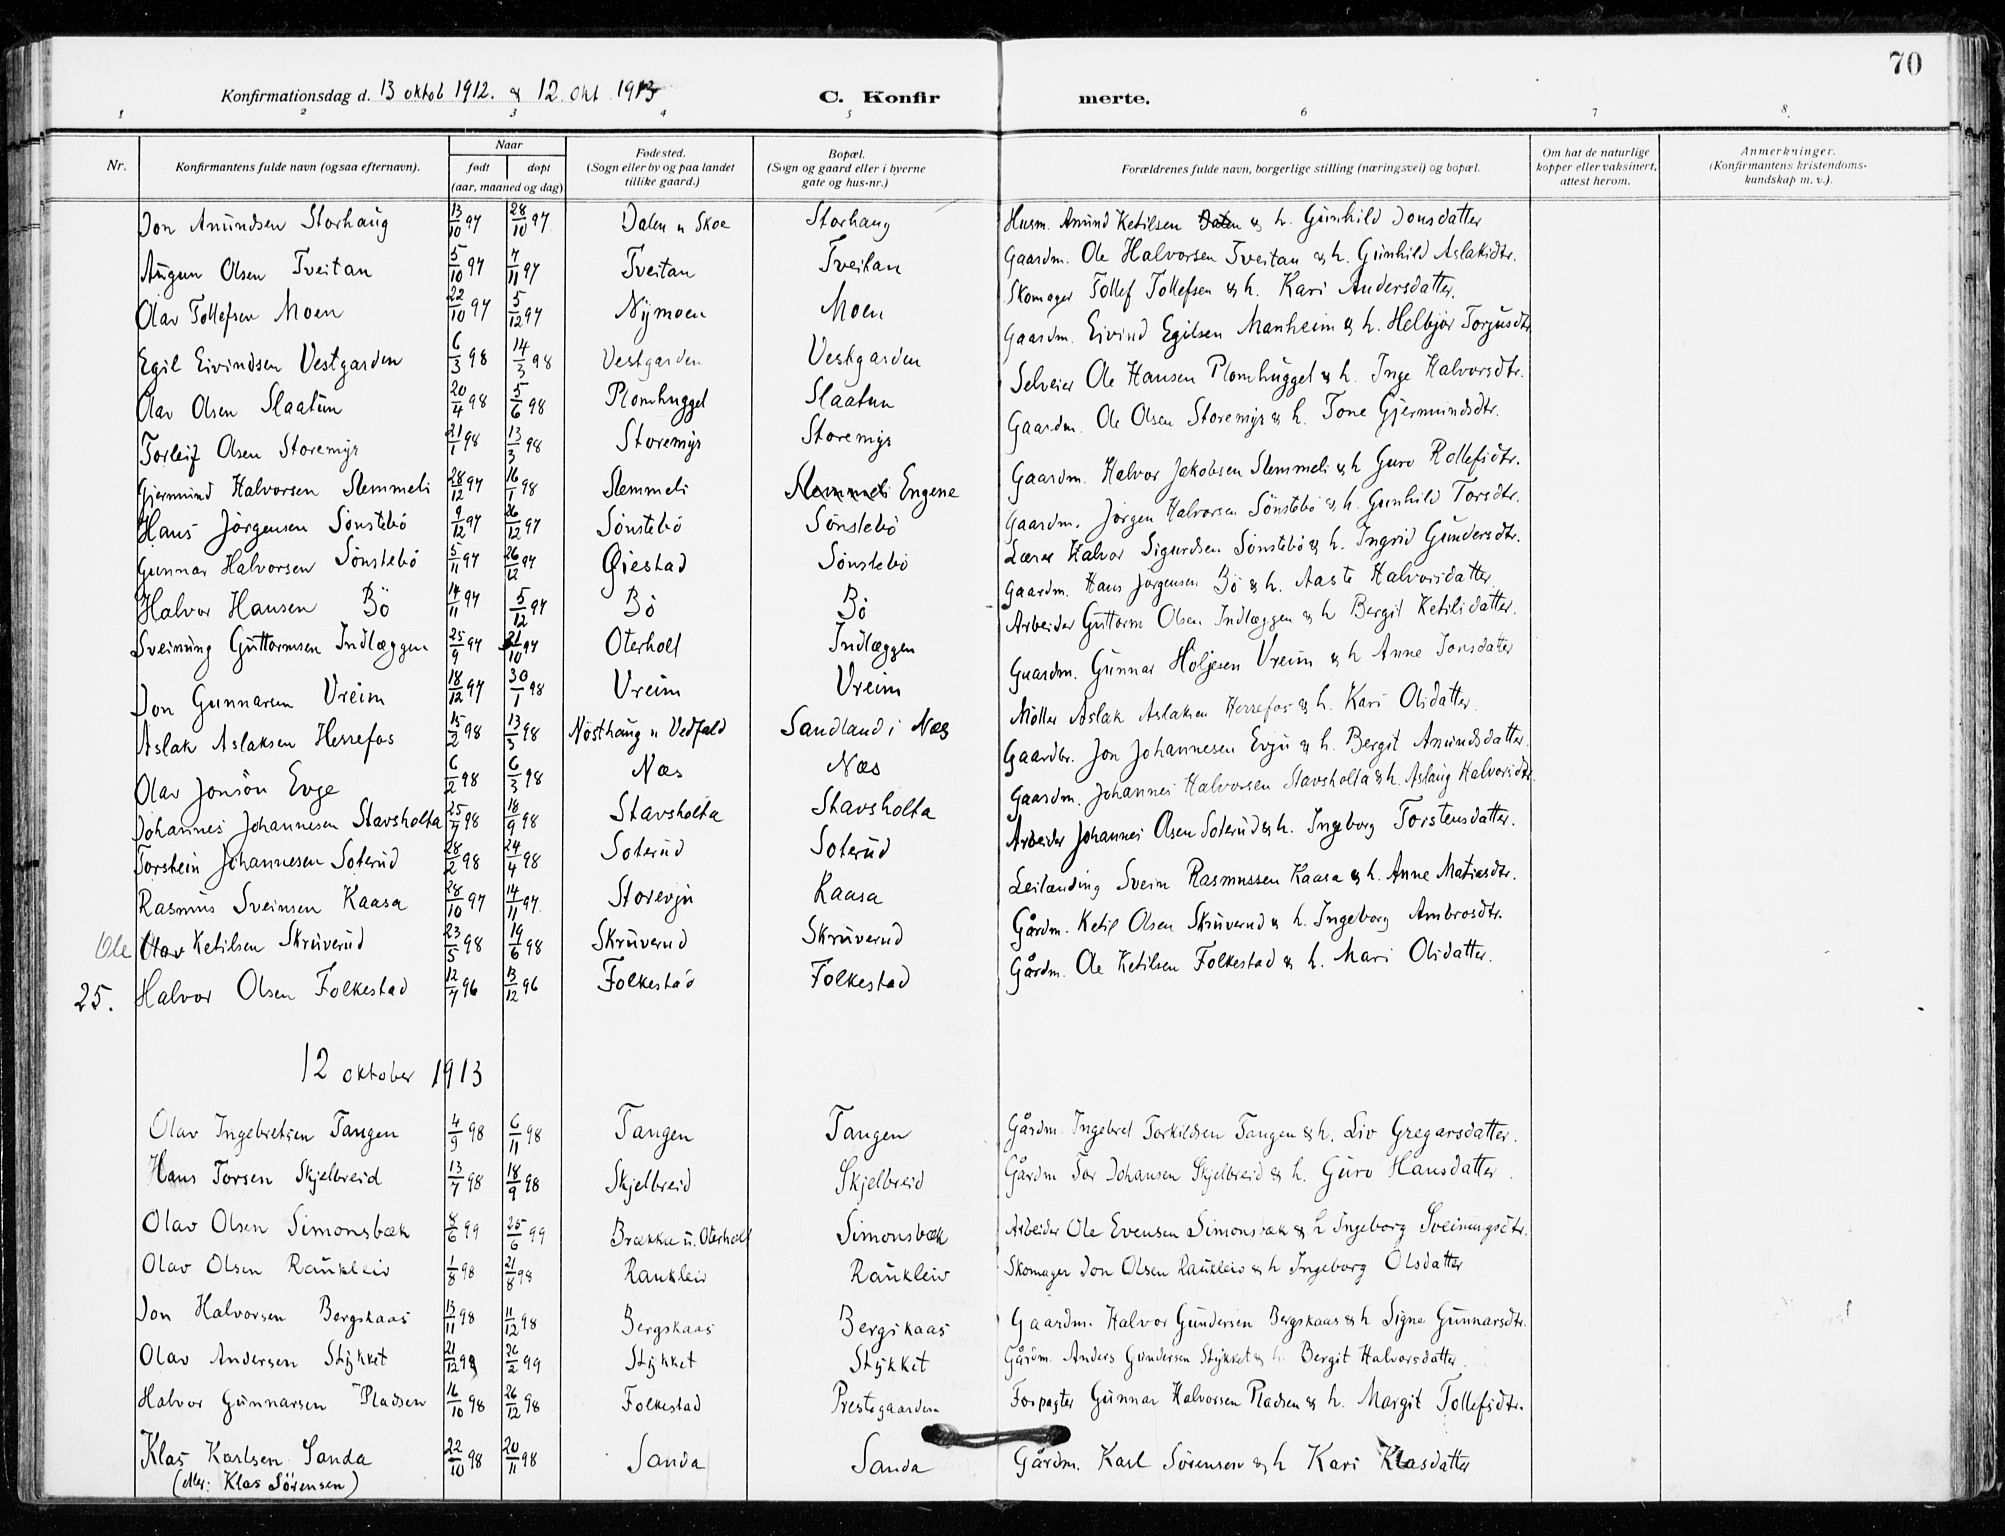 70
Konfirmationsdag d. 13 oktob 1912. & 12. okt. 1913
C. Konfirmerte.
1 2 3 4 5 6 7 8.
Nr. Konfirmantens fulde navn (ogsaa efternavn). Naar født døpt (aar, maaned og dag) Fødested. (Sogn eller by og paa landet tillike gaard.) Bopæl. (Sogn og gaard eller i byerne gate og hus-nr.) Forældrenes fulde navn, borgerlige stilling (næringsvei) og bopæl. Om hat de naturlige kopper eller vaksinert, attest herom. Anmerkninger. (Konfirmantens kristendomskundskap m. v.).
Jon Amundsen Storhaug 13/10 97 28/10 97 Dalen u Skoe Storhaug Husm. Amund Ketilsen Dalen & h. Gunhild Jonsdatter
Augun Olsen Tveitan 5/10 97 7/11 97 Tveitan Tveitan Gaardm. Ole Halvorsen Tveitan & h. Gunhild Aslaksdtr.
Olav Tollefsen Moen 22/10 97 5/12 97 Nymoen Moen Skomager Tollef Tollefsen & h. Kari Andersdatter.
Egil Eivindsen Vestgarden 6/3 98 14/3 98 Vestgarden Vestgarden Gaardm. Eivind Egilsen Manheim & h. Helbjør Torjusdtr
Olav Olsen Slaatun 20/4 98 5/6 98 Plomhugget Slaatun Selveier Ole Hansen Plomhugget & h. Inge Halvorsdtr.
Torleif Olsen Storemyr 21/1 98 13/3 98 Storemyr Storemyr Gaardm. Ole Olsen Storemyr & h. Tone Gjermundsdtr.
Gjermund Halvorsen Slemmeli 28/12 97 16/1 98 Slemmeli Slemmeli Engene Gaardm. Halvor Jakobsen Slemmeli & h Guro Rollefsdtr.
Hans Jørgensen Sönstebö 9/12 97 26/12 97 Sönstebö Sönstebö Gaardm. Jørgen Halvorsen Sönstebö & h. Gunhild Torsdtr.
Gunnar Halvorsen Sönstebö 5/11 97 26/12 97 Øiestad Sönstebö Lærer Halvor Sigurdsen Sönstebö & h. Ingrid Gundersdtr.
Halvor Hansen Bö 14/11 97 5/12 97 Bö Bö Gaardm. Hans Jørgensen Bö & h. Aaste Halvorsdatter
Sveinung Guttormsen Indlæggen 25/9 97 31/10 97 Oterholt Indlæggen Arbeider Guttorm Olsen Indlæggen & h Bergit Ketilsdatter.
Jon Gunnarsen Vreim 18/12 97 30/1 98 Vreim Vreim Gaardm. Gunnar Høljesen Vreim & h Anne Jonsdatter
Aslak Aslaksen Herrefos 15/2 98 13/3 98 Nösthaug u Vedfald Sandland i Næs Möller Aslak Aslaksen Herrefos & h. Kari Olsdatter
Olav Jonsön Evge 6/2 98 6/3 98 Næs Næs Gaardbr. Jon Johannesen Evju & h. Bergit Amundsdatter
Johannes Johannesen Stavsholta 25/7 98 18/9 98 Stavsholta Stavsholta Gaardm. Johannes Halvorsen Stavsholta & h. Aslaug Halvorsdtr.
Torstein Johannesen Soterud 28/2 98 24/4 98 Soterud Soterud Arbeider Johannes Olsen Soterud & h. Ingeborg Torstensdatter.
Rasmus Sveinsen Kaasa 28/10 97 14/11 97. Storevju Kaasa Leilænding Svein Rasmussen Kaasa & h. Anne Matiasdtr.
Ole Olav Ketilsen Skruverud 23/5 98 19/6 98 Skruverud Skruverud Gårdm. Ketil Olsen Skruverud & h. Ingeborg Ambrosdtr.
25. Halvor Olsen Folkestad 12/7 96 13/12 96 Folkestad Folkestad Gårdm. Ole Ketilsen Folkestad & h. Mari Olsdatter.
12 oktober 1913
Olav Ingebretsen Tangen 4/9 98 6/11 98 Tangen Tangen Gårdm. Ingebret Torkildsen Tangen & h. Liv Gregarsdatter.
Hans Torsen Skjelbreid 13/7 98 18/9 98 Skjelbreid Skjelbreid Gårdm Tor Johansen Skjelbreid & h. Guro Hansdatter.
Olav Olsen Simonsbæk 8/6 99 25/6 99 Brækka u. Oterholt Simonsbæk Arbeider Ole Evensen Simonsbæk & h Ingeborg Sveinungsdtr.
Olav Olsen Raukleiv 1/8 98 21/8 98 Raukleiv Raukleiv Skomager Jon Olsen Raukleiv & h Ingeborg Olsdatter
Jon Halvorsen Bergskaas 13/11 98 11/12 98 Bergskaas Bergskaas Gaardm. Halvor Gundersen Bergskaas & h Signe Gunnarsdtr.
Olav Andersen Stykket 21/12 98 26/2 99 Stykket Stykket Gårdm. Anders Gundersen Stykket & h Bergit Halvorsdatter.
Halvor Gunnarsen Pladsen 16/10 98 26/12 98 Folkestad Prestegaarden Forpagter Gunnar Halvorsen Pladsen & h. Margit Tollefsdtr.
Klas Karlsen Sanda 22/10 98 20/11 98 Sanda Sanda Gårdm. Karl Sörensen & h Kari Klasdatter
(eller: Klas Sörensen)